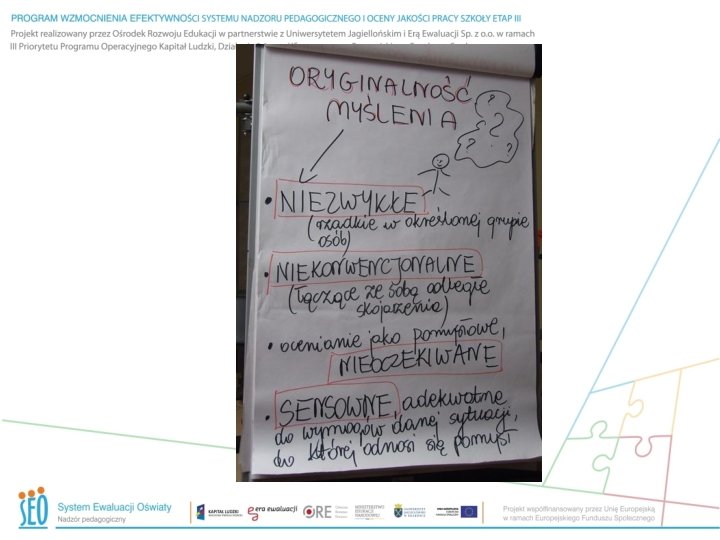 PROGRAM WZMOCNIENIA EFEKTYWNOŚCI SYSTEMU NADZORU PEDAGOGICZNEGO I OCENY JAKOŚCI PRACY SZKOŁY ETAP III
Projekt realizowany przez Ośrodek Rozwoju Edukacji w partnerstwie z Uniwersytetem Jagiellońskim i Erą Ewaluacji Sp. z o.o. w ramach
III Priorytetu Programu Operacyjnego Kapitał Ludzki,
ORYGINALNOŚĆ
MYŚLENIA
? ? ? ?
• NIEZWYKŁE
(rzadkie w określonej grupie
osób)
• NIEKONWENCJONALNE
(łączące ze sobą odległe
skojarzenia)
• ocenianie jako pomysłowe,
NIEOCZEKIWANE
• SENSOWNE, adekwatne
do wymogów danej sytuacji,
do której odnosi się pomysł
SEO
System Ewaluacji Oświaty
Nadzór pedagogiczny
KAPITAŁ LUDZKI
era ewaluacji
ORE
Projekt współfinansowany przez Unię Europejską
w ramach Europejskiego Funduszu Społecznego